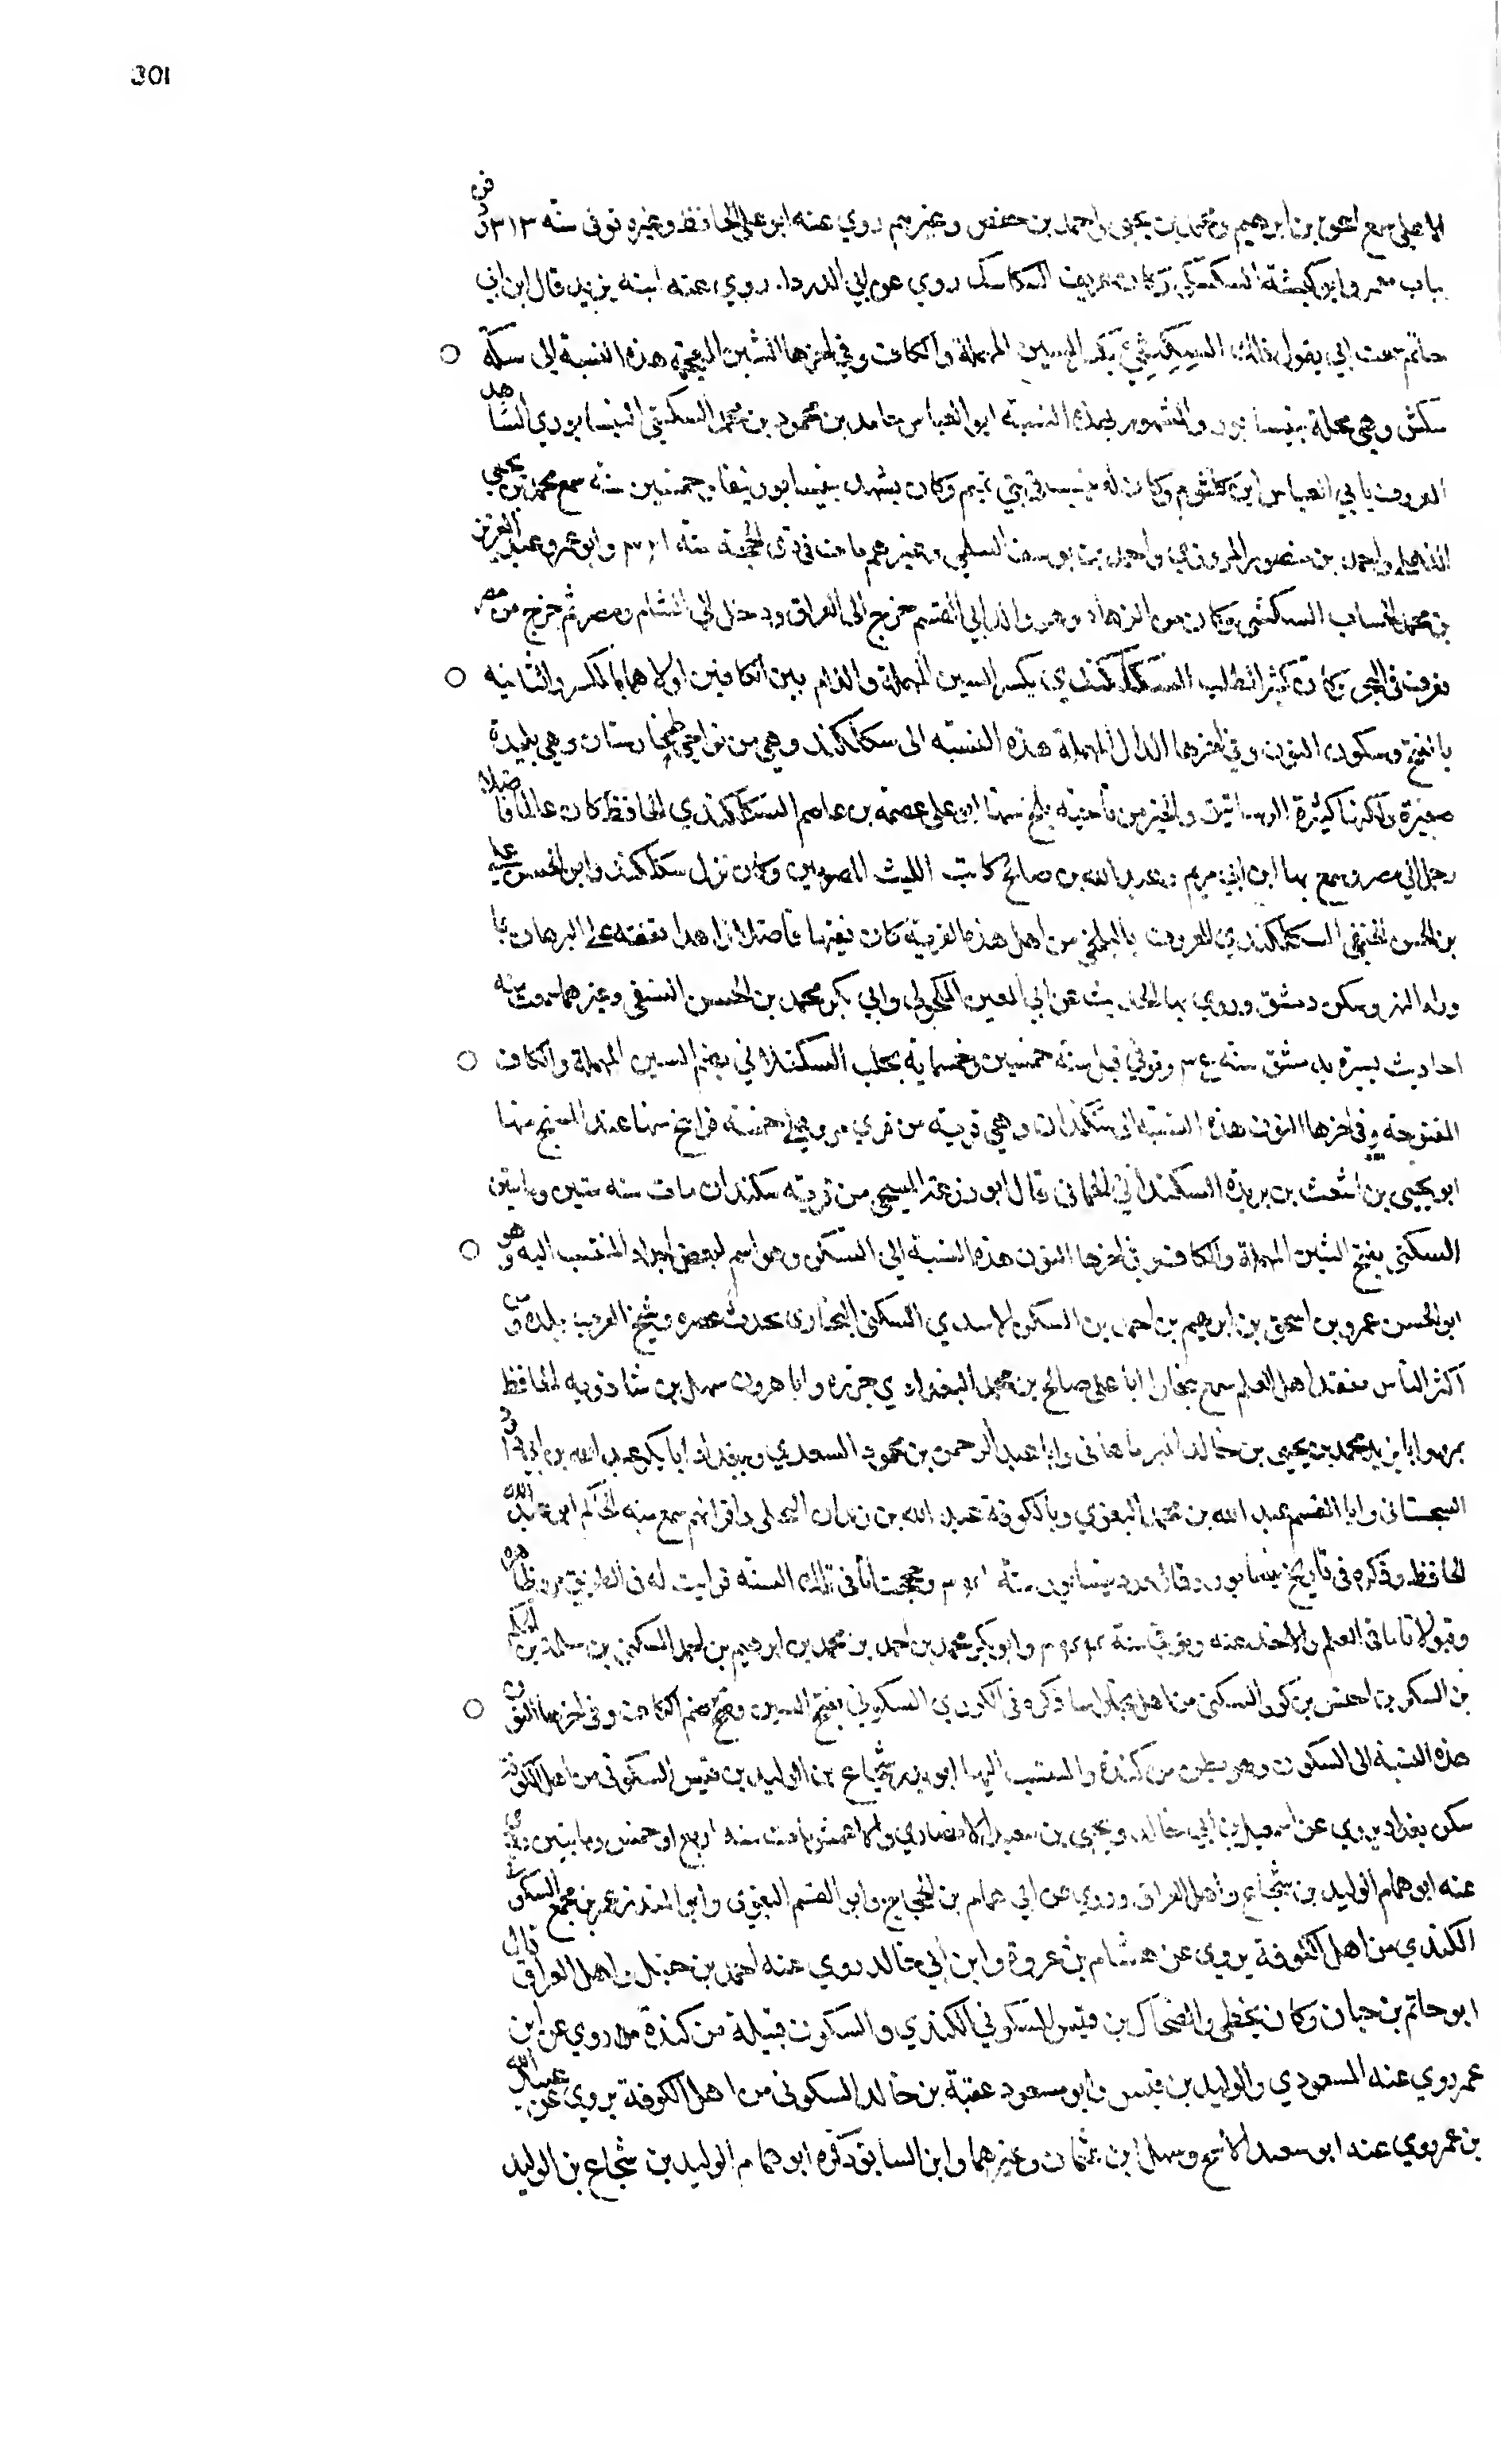 301
الاعلى سمع اسحق بن ابرهيم ومحمد بن يحيى واحمد بن حفص وغيرهم روي عنه ابو علي الحافظ وغيره توفى سنه ٣١٣
باب معمر وابو كبشة السكسكي وكان عريف السكاسك روي عن ابي الدردا. روي عنه ابنه يزيد قال ابن ابي
حاتم سمعت ابي يقول ذلك السِكِشِيّ بكسر السين المهملة والكاف وفي اخرها الشين المعجمة هذه النسبة الى سكة
سكش وهي محلة بنيسابور والمشهور بهذه النسبة ابو العباس حامد بن محمود بن محمد السكشي النيسابوري الشاهد
المعروف بابي العباس ابن كلثوم وكان له مسجد في بني تميم وكان يشهد بنيسابور نيفا وخمسين سنه سمع محمد بن يحيى
الذهلي واحمد بن منصور المروزي واحمد بن يوسف السلمي وغيرهم مات في ذى الحجة سنه وابو عمرو عبد العزيز
بن محمد السكشي وكان من الزهاد وهو والد ابي القسم خرج الى العراق ودخل الى الشام ومصر ثم خرج من مصر
فغرق في البحر وكان كثير الطلب السكلكندي بكسر السين المهملة واللام بين الكافين اولاهما بالكسر والثانيه
بالفتح وسكون النون وفي اخرها الدال المهملة هذه النسبه الى سكلكند وهي من نواحي طخارستان وهي بليدة
صغيرة ولكنها كثيرة الخير من ناحيه بلخ منها ابو علي عصمه بن عاصم السكلكندي الحافظ كان عالما فاضلا
رحل الى مصر وسمع بها ابن ابي مريم وعبد الله بن صالح كاتب الليث المصريين وكان نزل سكلكند وابو الحسن علي
بن الحسن الحنفي السكلكندي المعروف بالبلخي من اهل هذه القرية كان فقيها فاضلا زاهدا تفقه على البرهان بما
وراء النهر وسكن دمشق وروي بها الحديث عن ابي المعين المكحولي وابي بكر محمد بن الحسن النسفي وغيرهما سمعت منه
احاديث يسيرة بدمشق وتوفي قبل سنه خمسين وخمسمايه بحلب السكنداني بضم السين المهملة والكاف
المفتوحة وفي اخرها النون هذه النسبة الى سكندان وهي قريه من قري مرو على خمسه فراسخ منها عند السنج منها
ابو يحيى بن اشعث بن بريدة السكنداني قال ابو زرعه السنجي من قريه سكندان مات سنه ستين ومايتين
السكنى بفتح السين المهملة والكاف وفي اخرها النون هذه النسبة الى السكن وهو اسم لبعض اجداد المنتسب اليه وهو
ابو الحسن عمرو بن اسحق بن ابرهيم بن احمد بن السكن الاسدي السكنى البخارى محدث عصره وشيخ العرب ببلده ومن
اكثر الناس تفقدا لاهل العلم سمع ببخارا ابا علي صالح بن محمد البغدادي جزره وابا هرون سهل بن شاذويه الحافظ
بمرو ابا يزيد محمد بن يحيى بن خالد الميرماهانى وابا عبد الرحمن بن محمود السعدي وببغداد ابا بكر عبد الله بن ابي داود
السجستانى وابا القسم عبد الله بن محمد البغوي وبالكوفة عبد الله بن زيدان البجلى واقرانهم سمع منه الحاكم ابو عبد الله
الحافظ وذكره في تاريخ نيسابور وقال ورد نيسابور سنه وحججت انا في تلك السنه فرايت له في الطريق مروة ظاهرة
وقبولا تاما في العلم والاخذ عنه وتوفي سنة وابو بكر محمد بن احمد بن محمد بن ابراهيم بن احمد السكني بن سلمة بن الحكم
بن السكن بن اخنس بن كوز السكنى من اهل بخارا ذكره في الكوزي السكوني بفتح السين وضم الكاف وفي اخرها النون
هذه النسبة الى السكون وهو بطن من كندة والمنتسب اليها ابو بدر شجاع بن الوليد بن قيس السكوني من اهل الكوفة
سكن بغداد يروي عن اسمعيل بن ابي خالد ويحيى بن سعيد الانصاري والاعمش مات سنه اربع او خمس ومايتين روي
عنه ابو همام الوليد بن شجاع واهل العراق وروي عن ابي همام بن الحجاج وابو القسم البغوي وابو المنذر عمر بن مجمع السكوني
الكندي من اهل الكوفة يروي عن هشام بن عروة وابن ابي خالد روي عنه احمد بن حنبل واهل العراق قال
ابو حاتم بن حبان وكان يخطي والضحاك بن قيس السكوني الكندي والسكون قبيلة من كندة روي عن ابن
عمر روي عنه المسعودي والوليد بن قيس وابو مسعود عقبة بن خالد السكوني من اهل الكوفة يروي عن عبيد الله
بن عمر روي عنه ابو سعيد الاشج وسهل ابن عثمان وغيرهما وابن السابق ذكره ابو همام الوليد بن شجاع بن الوليد